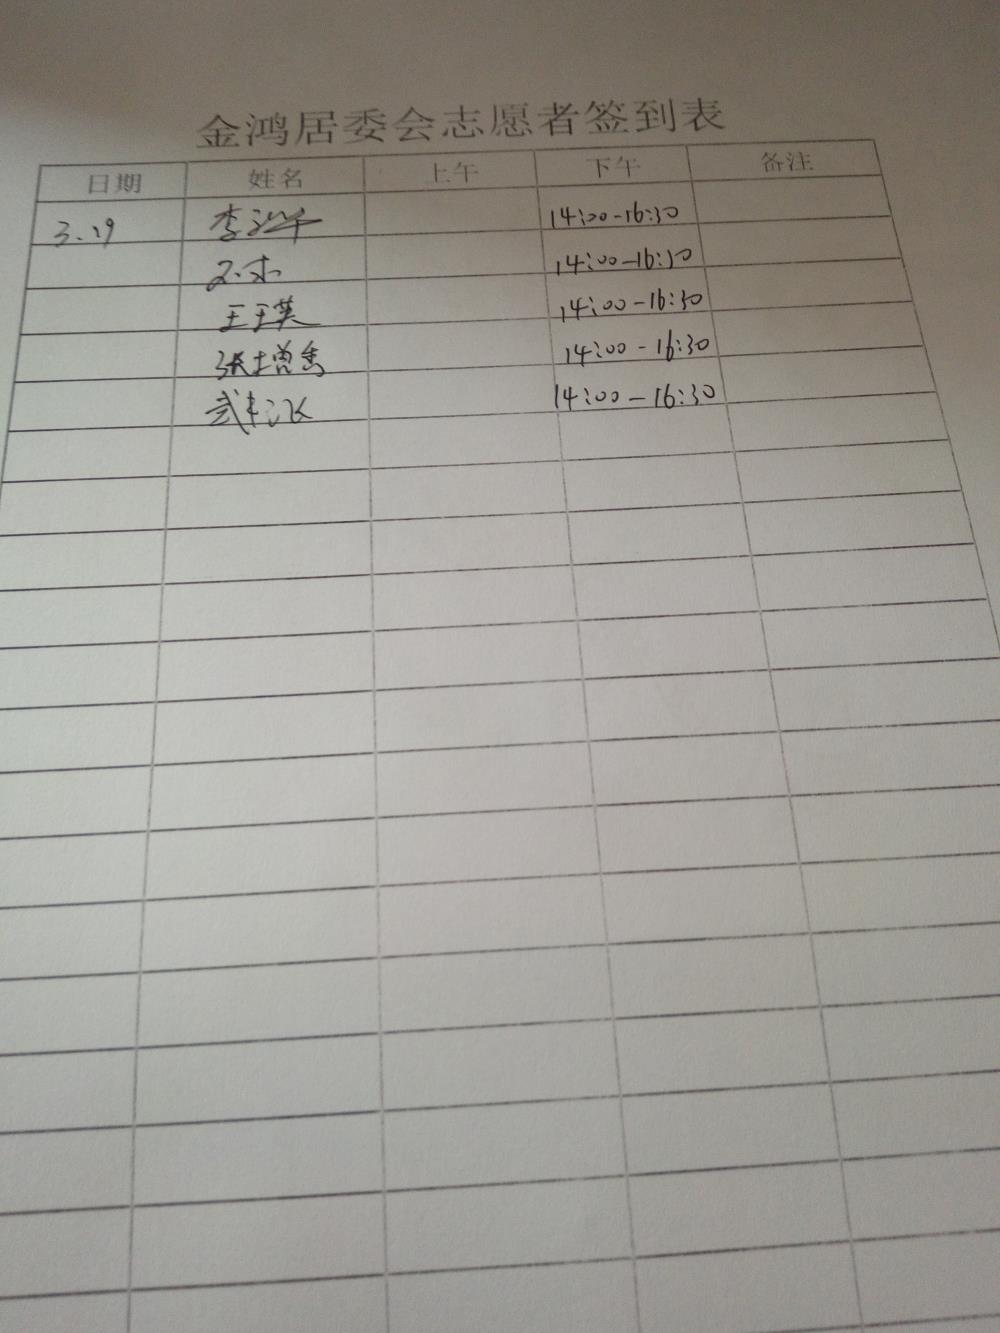 金鸿居委会志愿者签到表
日期 姓名 上午 下午 备注
3.19 李 14:00-16:30
14:00-16:30
王玉英 14:00-16:30
张增秀 14:00-16:30
武 14:00-16:30